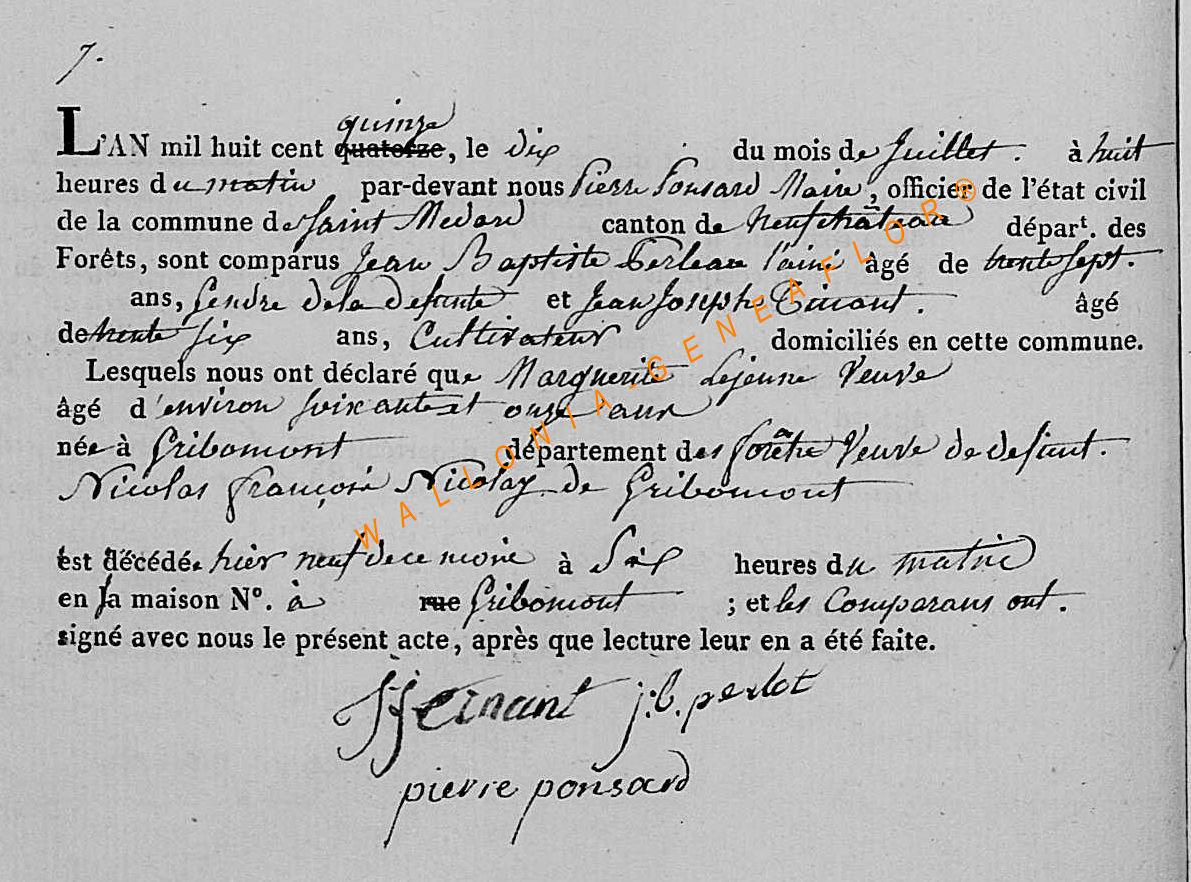 7.
quinze
L'AN mil huit cent quatorze, le dix du mois de Juillet. à huit
heures du matin par-devant nous Pierre Ponsard Maire, officier de l'état civil
de la commune de Saint Medard canton de Neufchâteau départ. des
Forêts, sont comparus Jean Baptiste l'ainé âgé de trente sept.
ans, Gendre de la defunte et Jean Joseph Tinant. âgé
de trente six ans, Cultivateur domiciliés en cette commune.
Lesquels nous ont déclaré que Marguerite Lejeune Veuve
âgé d'environ soixante et onze ans
née à Gribomont département des forêts Veuve de defunt.
Nicolas François Nicolay de Gribomont
est décédée hier neuf de ce mois à Six heures du matin
en la maison N°. à rue Gribomont ; et les Comparans ont.
signé avec nous le présent acte, après que lecture leur en a été faite.
JJ Tinant j:b. perlot
pierre ponsard
WALLONIA-GENEAFLOR®